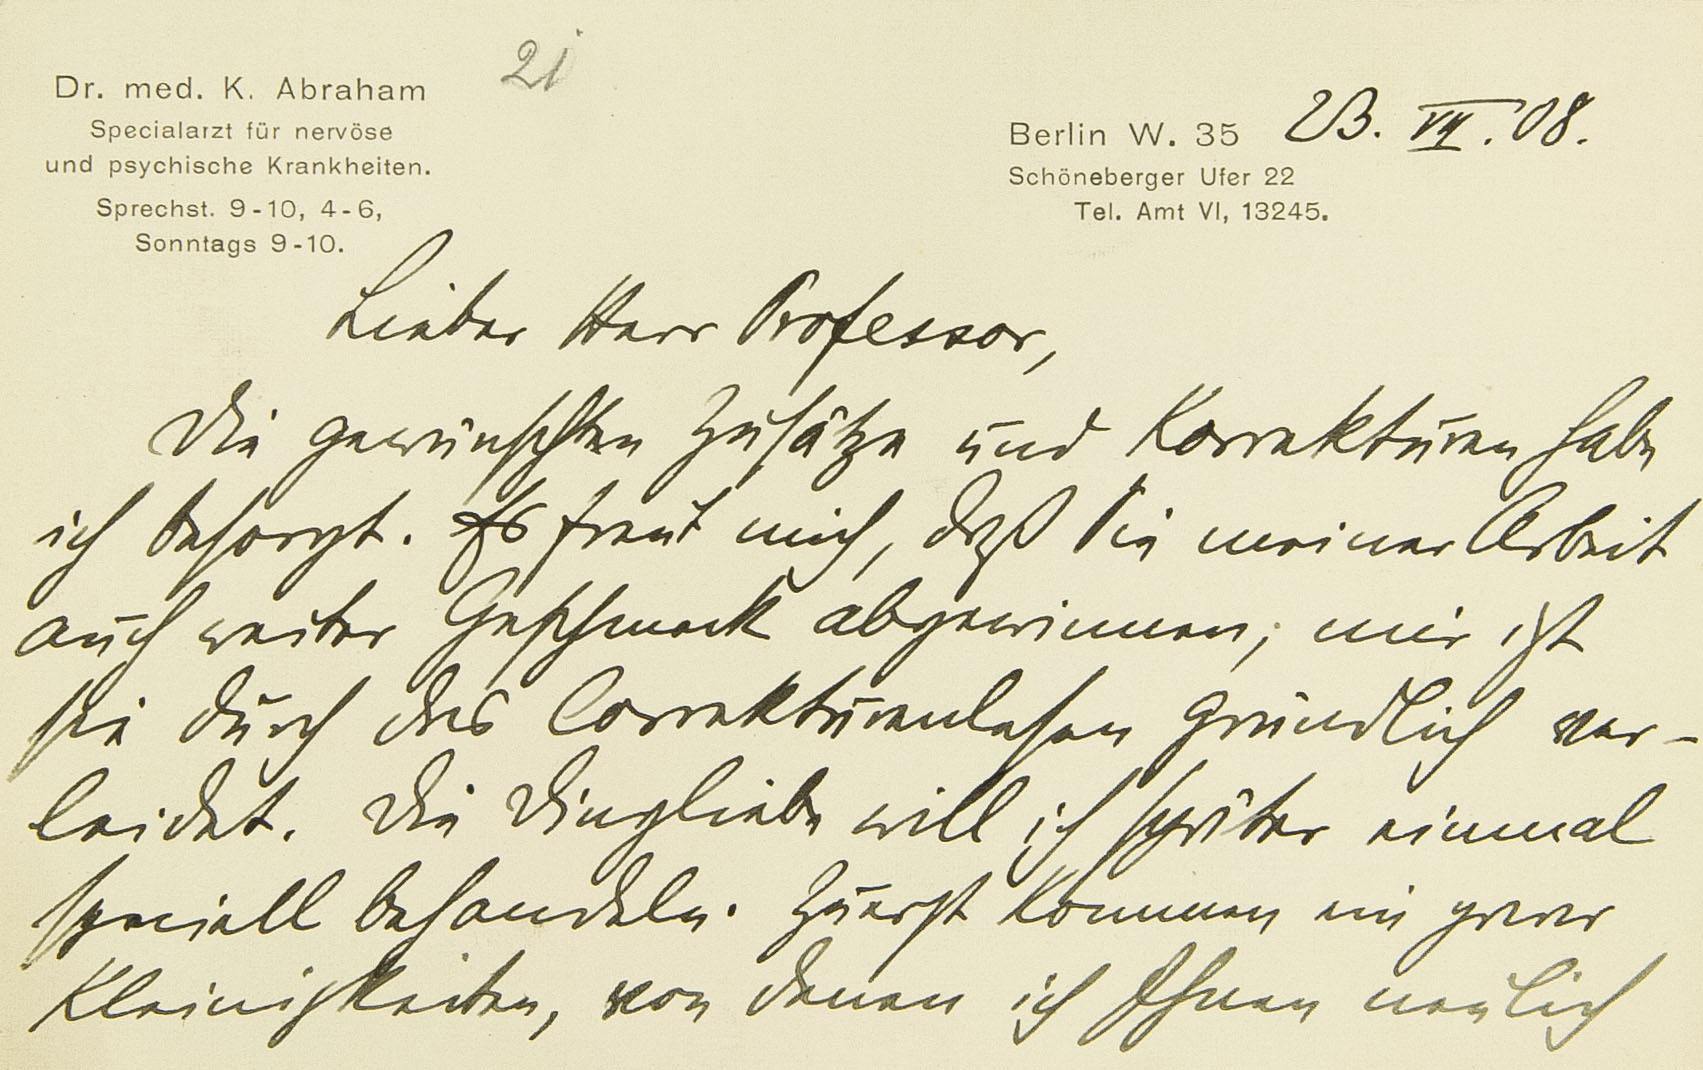 21
Dr. med. K. Abraham
Specialarzt für nervöse
und psychische Krankheiten.
Sprechst. 9-10, 4-6,
Sonntags 9-10.
Berlin W. 35 23. VII. 08.
Schöneberger Ufer 22
Tel. Amt VI, 13245.
Lieber Herr Professor,
Die gewünschten Zusätze und Korrekturen habe
ich besorgt. Es freut mich, daß Sie meiner Arbeit
auch weiter Geschmack abgewinnen; mir ist
sie durch das Correkturenlesen gründlich ver-
leidet. Die Dingliebe will ich später einmal
speciell behandeln. Zuerst kommen ein paar
Kleinigkeiten, von denen ich Ihnen neulich